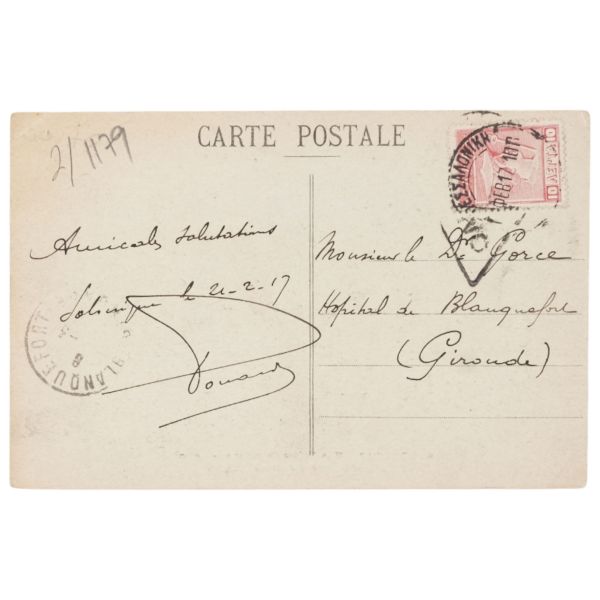 2/1179
CARTE POSTALE
ΘΕΣΣΑΛΟΝΙΚΗ
ΦΕΒ 17 10Π
10 ΛΕΠΤΑ 10
Amicales salutations
Salonique le 21-2-17
Monsieur le Dr Gorce
Hopital de Blanquefort
(Gironde)
BLANQUEFORT